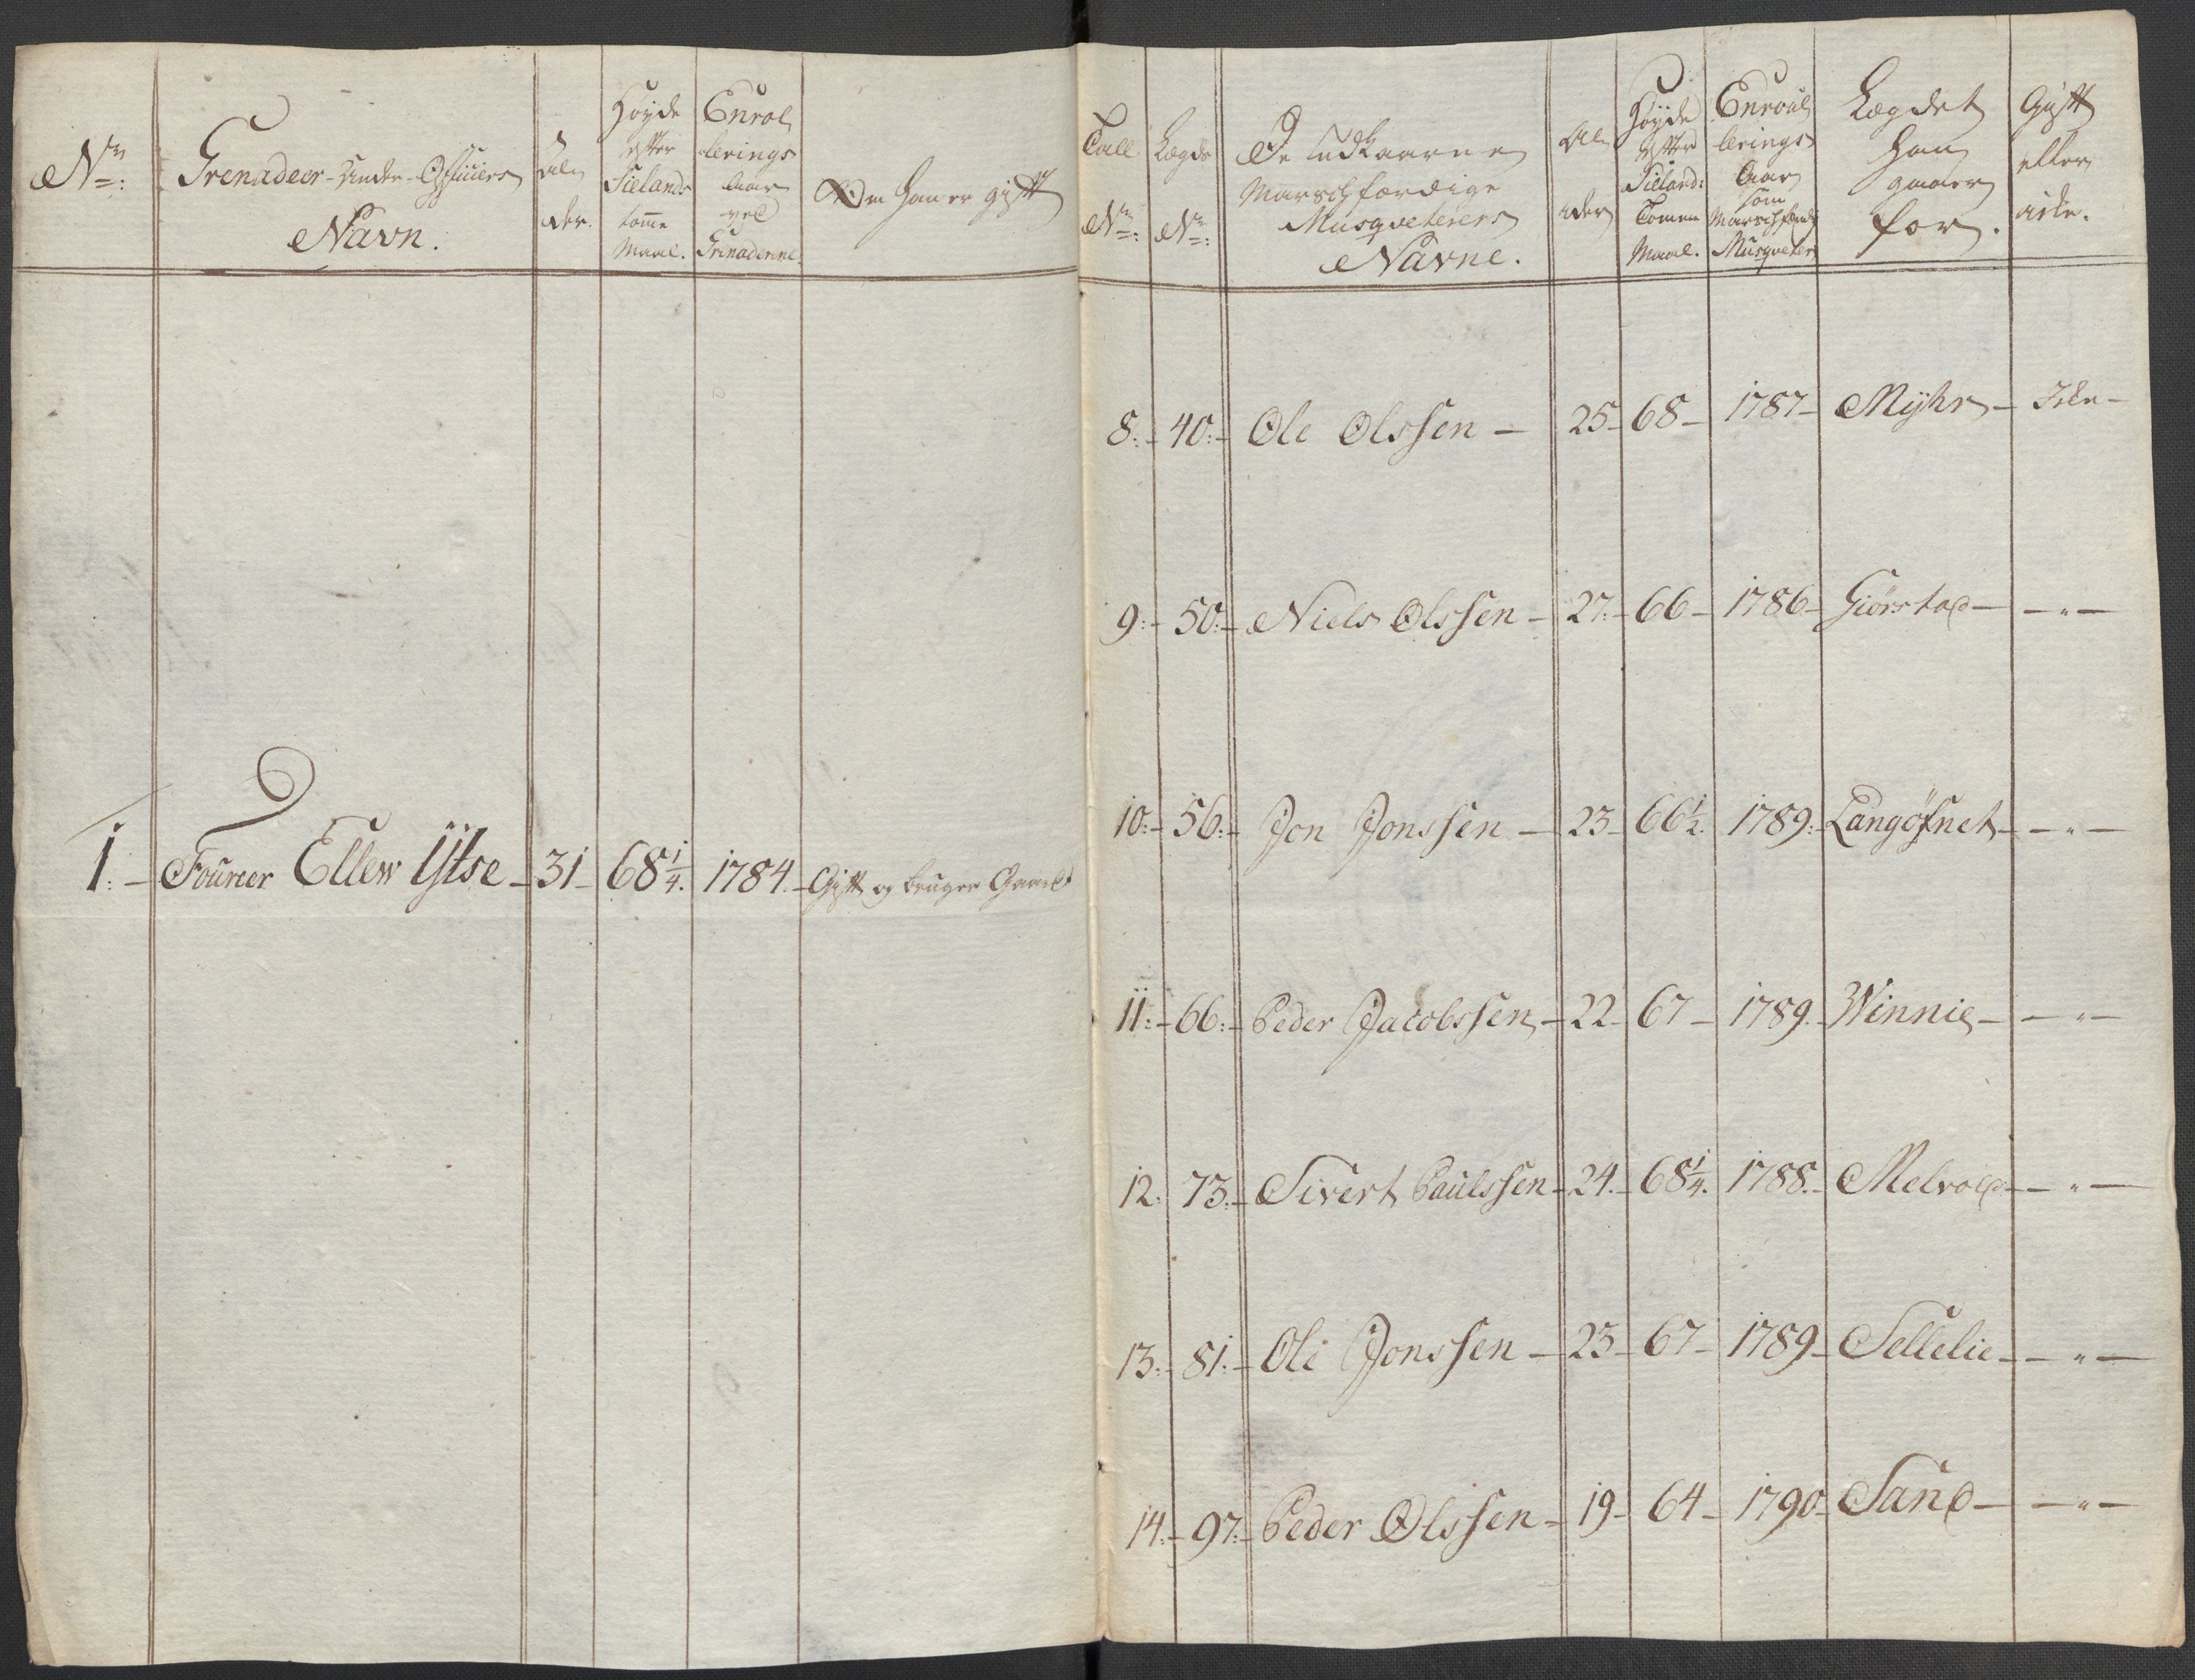 Nr:
Grenadeer-Under-Officiers
Navn.
Al
der.
Høyde
efter
Sielands
tomme
Maal.
Enrol
lerings
Aar
ved
Grenaderene.
Om han er gift
1. Fourier Ellew Ystse 31 68 1/4. 1784. Gift og bruger Gaard
Tall
Nr:
Lægds
Nr:
De udkaarne
Marschfærdige
Musqveterers
Navne.
Al
der
Høyde
efter
Sieland:
Tomme
Maal.
Enroul
lerings
Aar
som
Marschfærdig
Musqveter
Lægdet
han
gaaer
for.
Gift
eller
icke.
8. 40. Ole Olssen 25 68 1787 Myhr Icke
9. 50. Niels Olssen 27. 66 1786 Giørstad "
10. 56. Jon Jonssen 23 66 1/2. 1789. Langøfnet "
11. 66. Peder Jacobssen 22 67 1789. Winnie "
12. 73. Sivert Paulssen 24. 68 1/4. 1788. Melvold "
13. 81. Ole Jonssen 23 67 1789 Sellelie "
14. 97. Peder Olssen 19 64 1790 Sand "